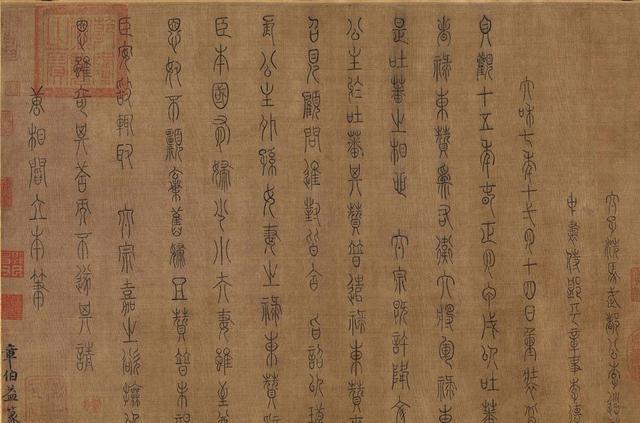 太子洗馬武都公李道
中書侍郎平章事李德
大和七年十一月十四日重裝背
貞觀十五年春正月甲戌以吐蕃
者祿東贊為右衛大將軍祿東
是吐蕃之相也 太宗既許降文
公主於吐蕃其贊普遣祿東贊
召見顧問進對皆合 旨詔以琅
長公主外孫女妻之祿東贊
臣本國有婦少小夫妻雖至尊
恩奴不願棄舊婦且贊普未謁
臣安敢輒取 太宗嘉之欲撫以
恩雖奇其答而不遂其請
唐相閻立本筆
章伯益篆